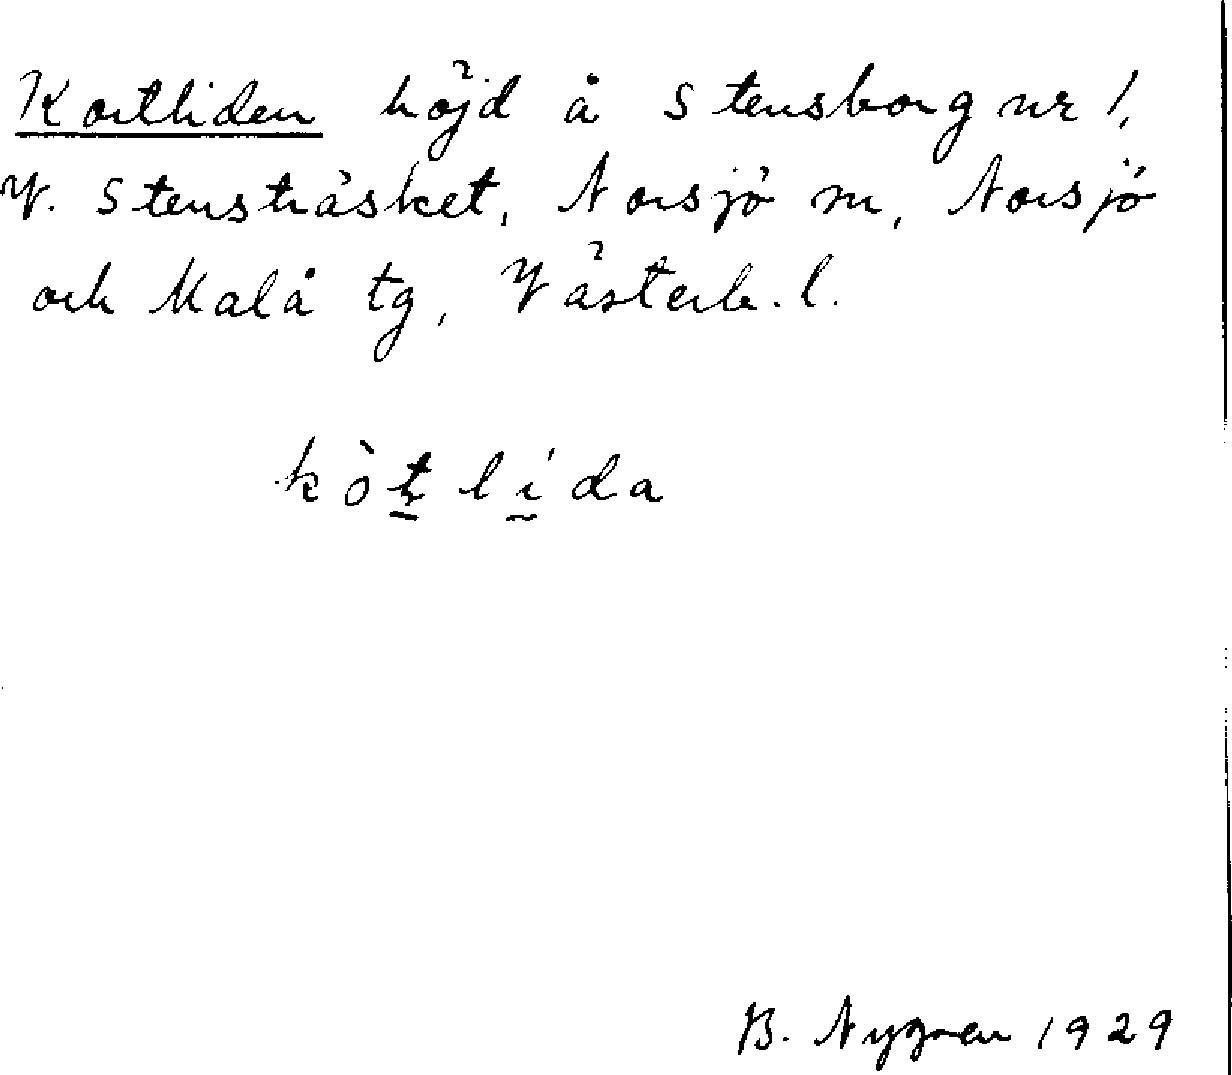 Kortliden höjd å Stensborg nr 1,
V. Stensträsket, Norsjö sn, Norsjö
och Malå tg, Västerb. l.
kòt̠ lḭ́da
B. Nygren 1929